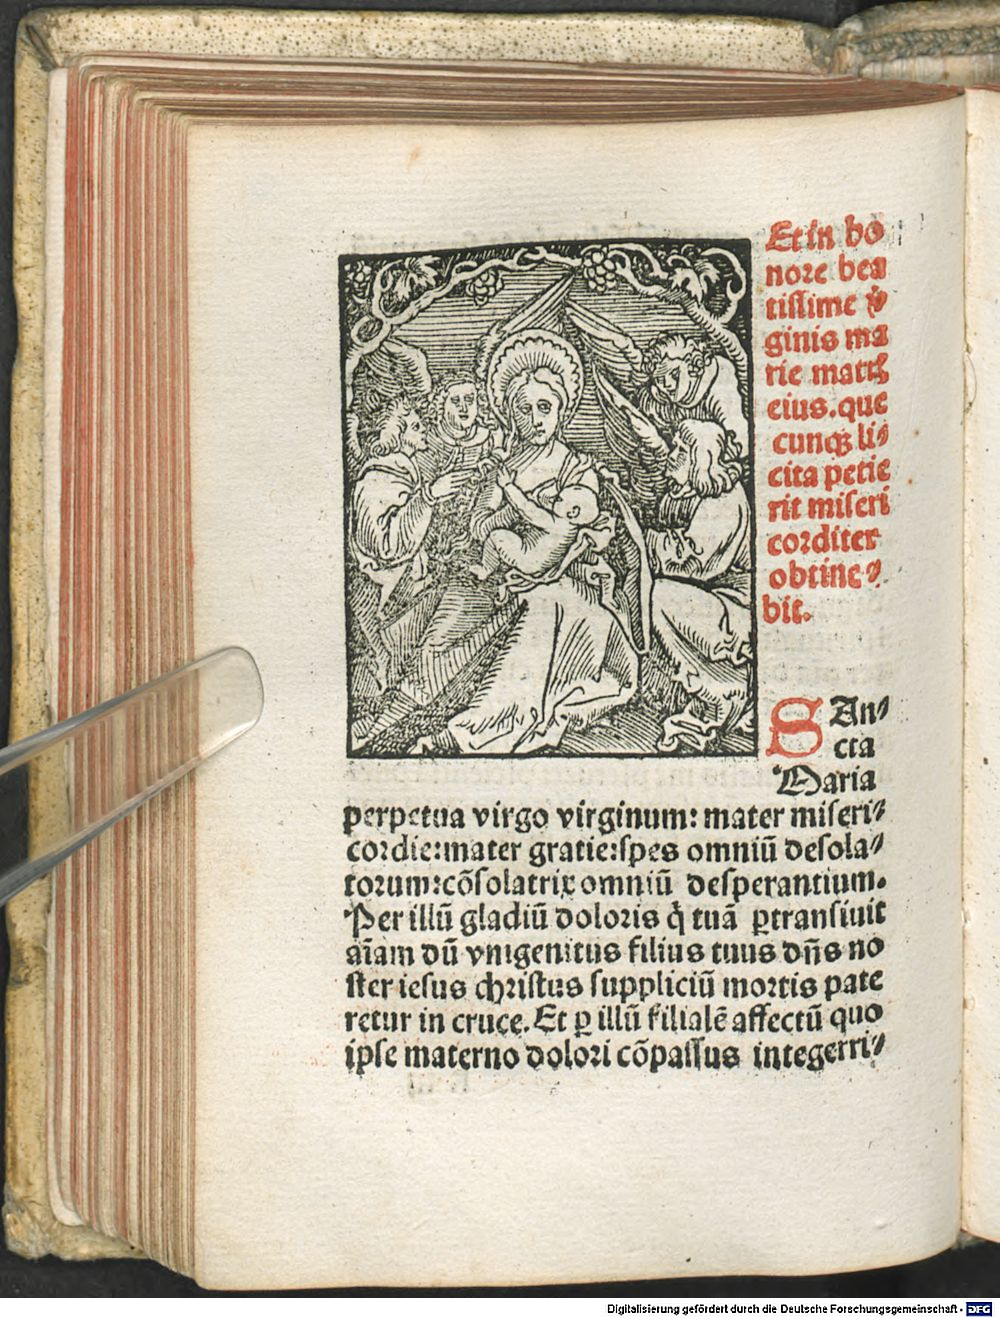 Et in ho
nore bea
tissime v̾
ginis ma
rie matrꝭ
eius. que
cunqꝫ li⸗
cita petie
rit miseri
corditer
obtine⸗
bit.
SAn⸗
cta
Maria
perpetua virgo virginum: mater miseri⸗
cordie: mater gratie: spes omniū desola⸗
torum: cōsolatrix omniū desperantium.
Per illū gladiū doloris q̇ tuā ꝑtransiuit
aīam dū vnigenitus filius tuus dn̄s no
ster iesus christus suppliciū mortis pate
retur in cruce. Et ꝑ illū filialē affectū quo
ipse materno dolori cōpassus integerri⸗
Digitalisierung gefördert durch die Deutsche Forschungsgemeinschaft - DFG